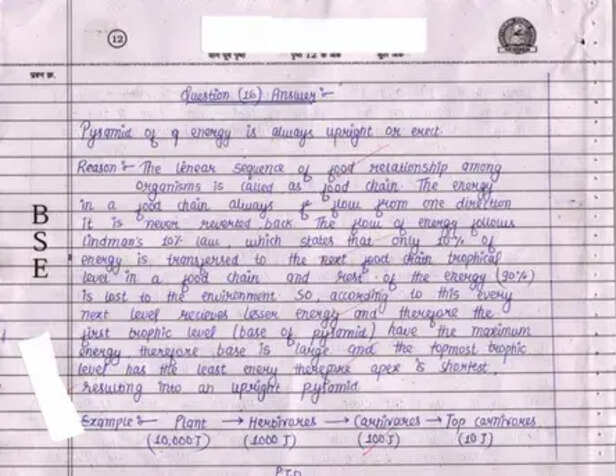 12
पृष्ठ 12 के अंक
प्रश्न क्र.
Question (16) Answer :-
Pyramid of q energy is always upright or erect.
Reason :- The linear sequence of food relationship among
organisms is called as food chain. The energy
in a food chain always flow from one direction
it is never reverted back. The flow of energy follows
Lindman's 10% law, which states that only 10% of
energy is transfered to the next food chain trophical
level in a food chain and rest of the energy (90%)
is lost to the environment. So, according to this every
next level recieves lesser energy and therefore the
first trophic level (base of pyramid) have the maximum
energy therefore base is large and the topmost trophic
level has the least enery therefore apex is shortest,
resulting into an upright pyramid.
Example :- Plant → Herbivores → Carnivores → Top carnivores
(10,000 J) (1000 J) (100 J) (10 J)
P.T.O
B
S
E